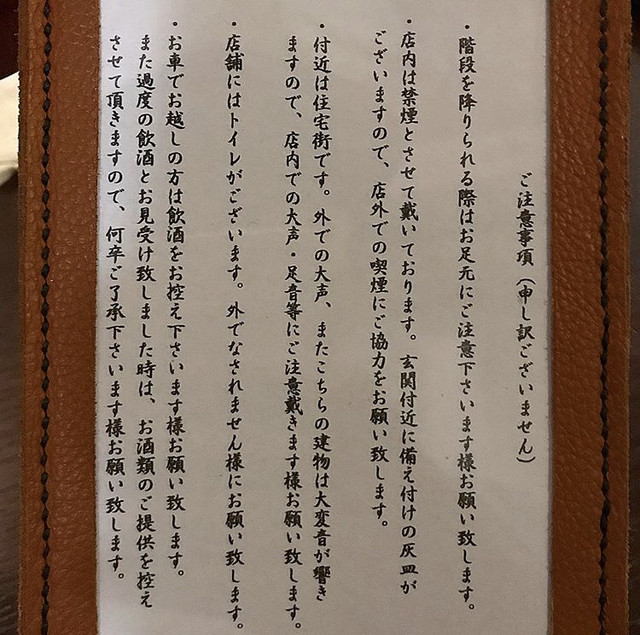 ご注意事項（申し訳ございません）
・階段を降りられる際はお足元にご注意下さいます様お願い致します。
・店内は禁煙とさせて戴いております。玄関付近に備え付けの灰皿が
ございますので、店外での喫煙にご協力をお願い致します。
・付近は住宅街です。外での大声、またこちらの建物は大変音が響き
ますので、店内での大声・足音等にご注意戴きます様お願い致します。
・店舗にはトイレがございます。外でなされません様にお願い致します。
・お車でお越しの方は飲酒をお控え下さいます様お願い致します。
また過度の飲酒とお見受け致しました時は、お酒類のご提供を控え
させて頂きますので、何卒ご了承下さいます様お願い致します。